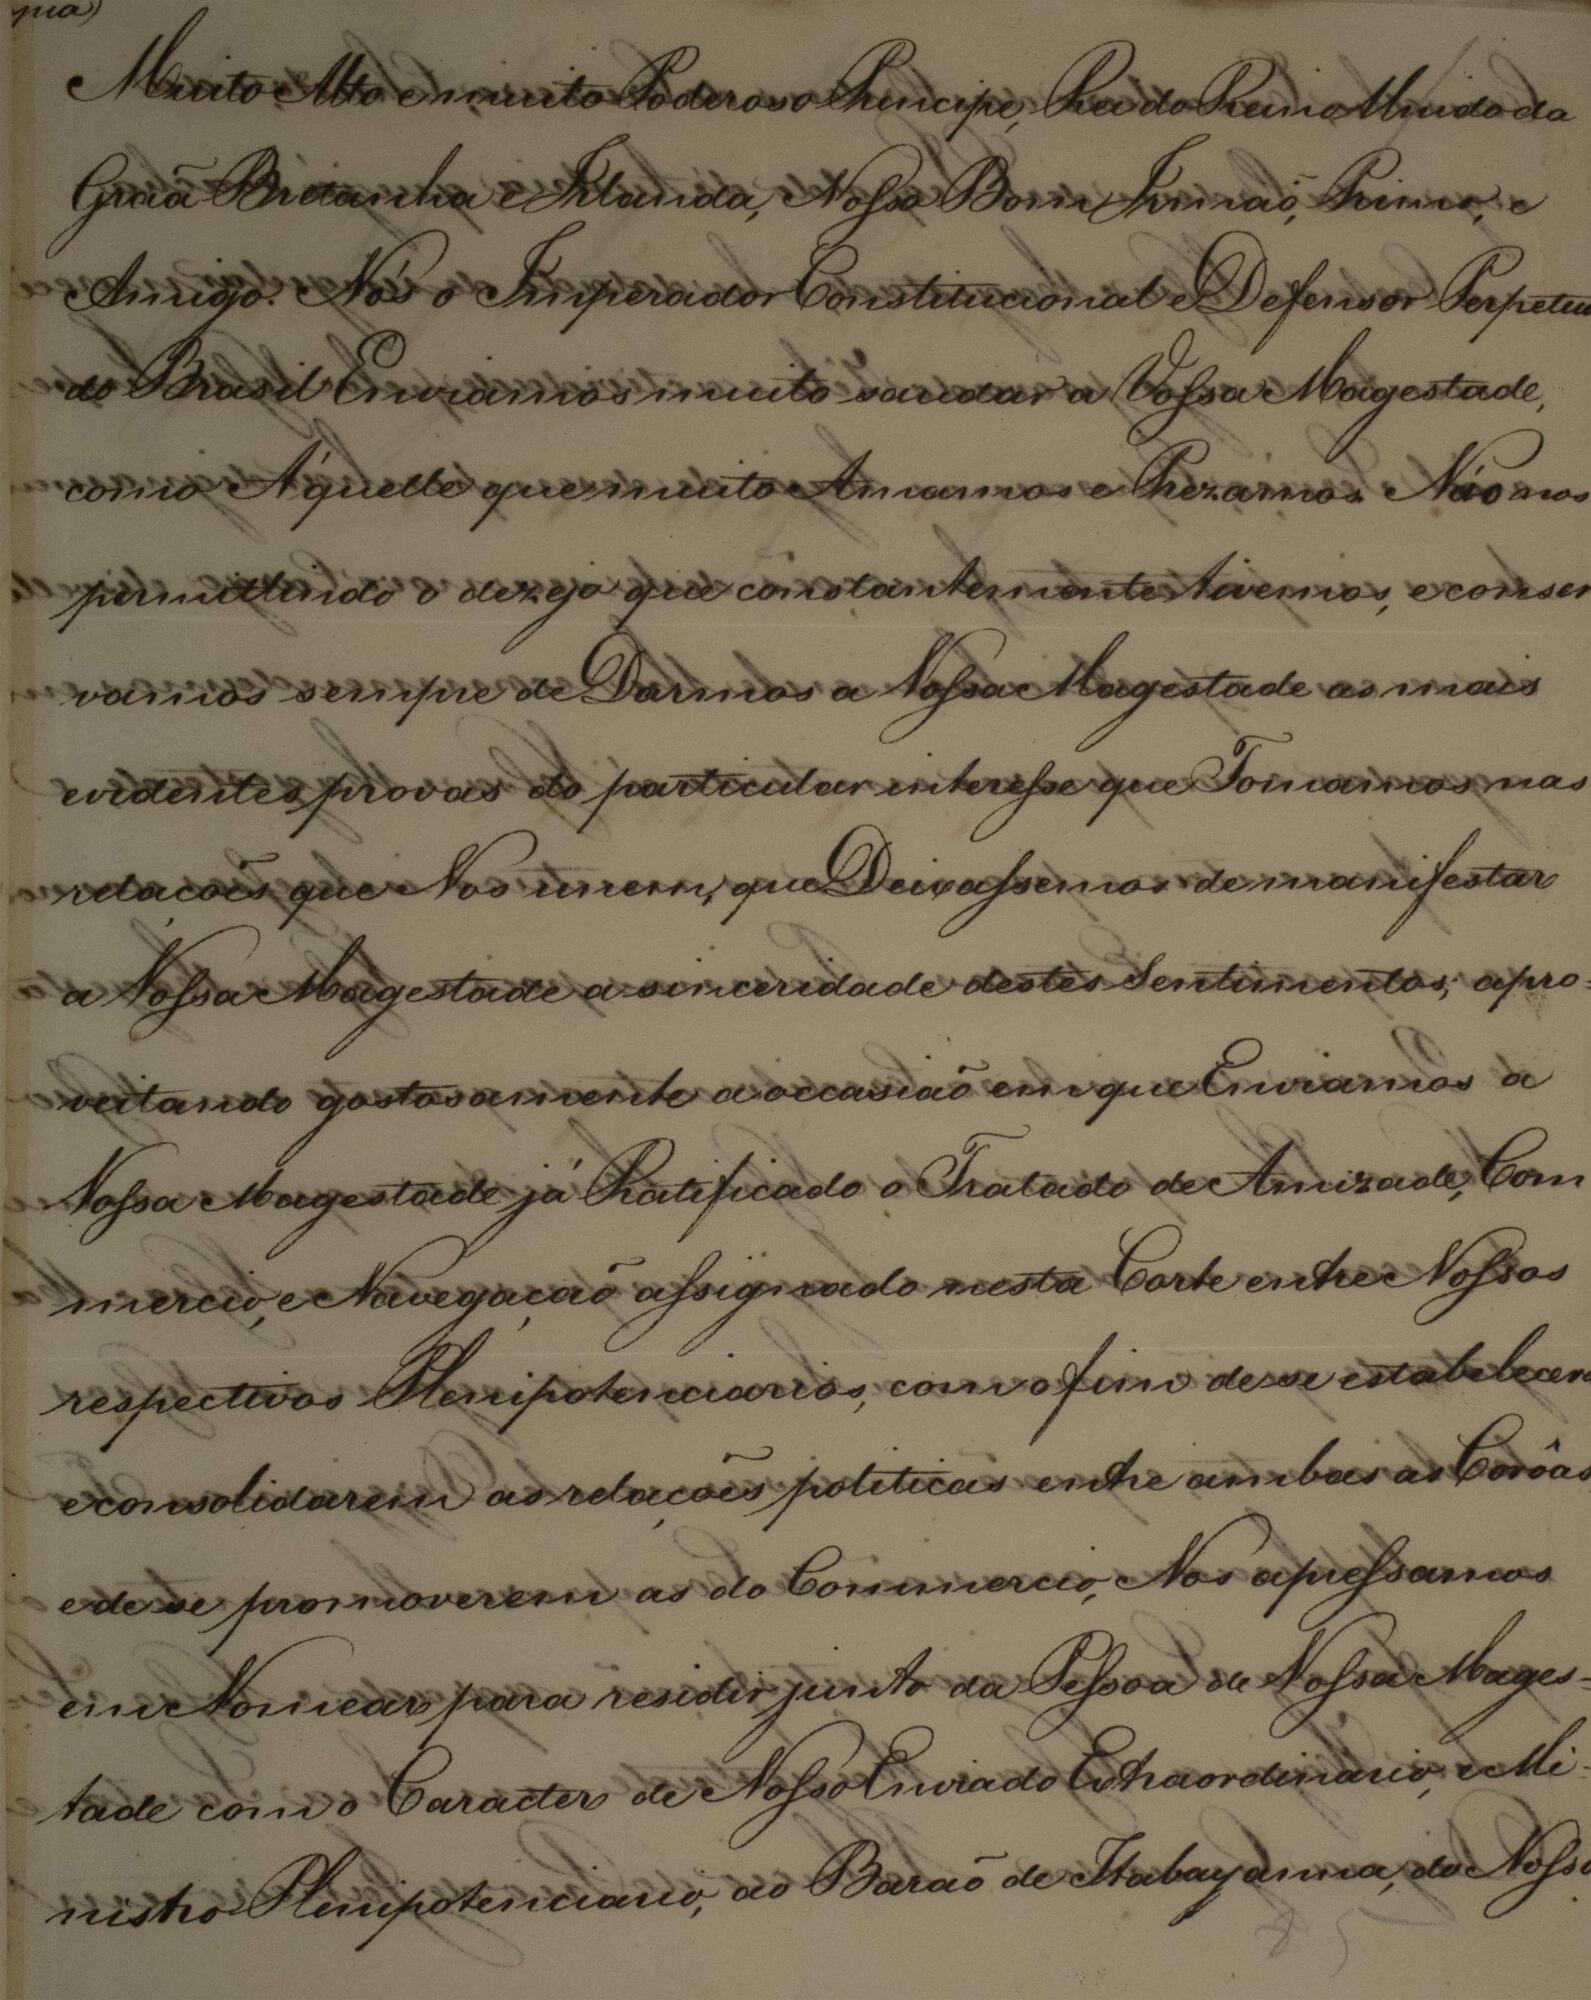 pia)
Muito Alto e muito Poderoso Principe, Rei do Reino Unido da
Graã Bretanha e Irlanda, Nosso Bom Irmaõ, Primo, e
Amigo. Nós o Imperador Constitucional e Defensor Perpetuo
do Brasil Enviamos muito saudar a Vossa Magestade,
como A'quelle que muito Amamos e Prezamos. Não nos
permittindo o dezejo que constantemente tivemos, e conser
vamos sempre de Darmos a Vossa Magestade as mais
evidentes provas do particular interesse que Tomamos nas
relacoẽs que Nos unem, que Deixassemos de manifestar
a Vossa Magestade a sinceridade destes Sentimentos; apro=
veitando gostosamente a occasiaõ em que Enviamos a
Vossa Magestade já Ratificado o Tratado de Amizade, Com
mercio, e Navegaçaõ assignado nesta Corte entre Nossos
respectivos Plenipotenciarios, com o fim de se estabelecerem
e consolidarem as relaçoẽs politicas entre ambas as Corôas,
e de se promoverem as do Commercio, Nos apressamos
em Nomear para residir junto da Pessoa de Vossa Mages=
tade com o Caracter de Nosso Enviado Extraordinario, e Mi=
nistro Plenipotenciario, ao Barão de Itabayanna, do Nosso